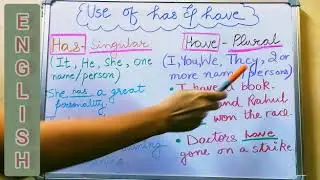 ENGLISH
Use of has & have
Has - Singular
(It, He, She, one
name/person)
She has a great
personality.
Have - Plural
(I, You, We, They, 2 or
more names/persons)
• I have a book.
and Rahul
won the race.
• Doctors have
gone on a strike